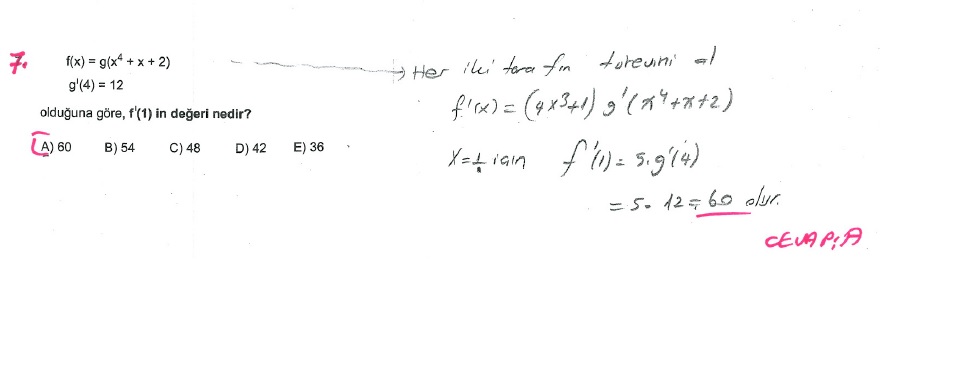 7. f(x) = g(x⁴ + x + 2)
g'(4) = 12
olduğuna göre, f'(1) in değeri nedir?
A) 60 B) 54 C) 48 D) 42 E) 36
→ Her iki tarafın türevini al
f'(x) = (4x³+1) g'(x⁴+x+2)
x=1 için f'(1) = 5.g'(4)
= 5. 12 = 60 olur.
CEVAP: A